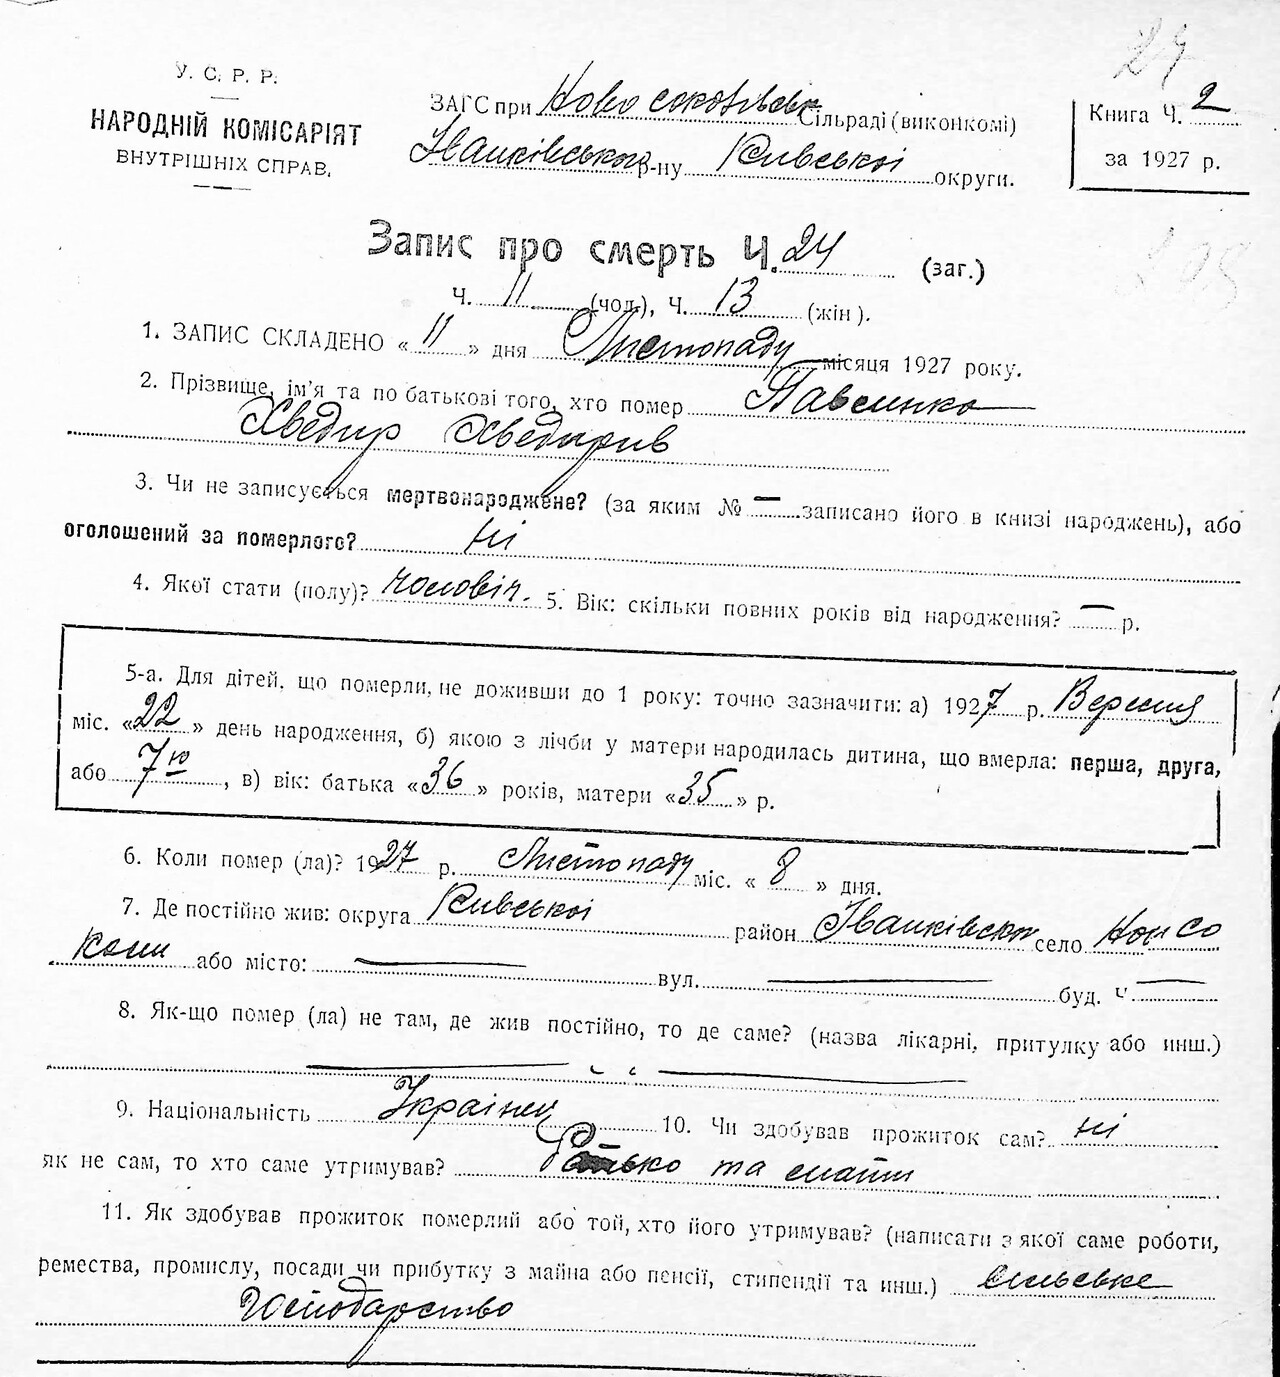 24
У. С. Р. Р.
НАРОДНІЙ КОМІСАРІЯТ
ВНУТРІШНІХ СПРАВ.
ЗАГС при Ново соколівськ Сільраді (виконкомі)
Іванківського р-ну Київської округи.
Книга Ч. 2
за 1927 р.
Запис про смерть Ч. 24 (заг.)
Ч. 11 (чол.), Ч. 13 (жін).
1. ЗАПИС СКЛАДЕНО « 11 » дня Листопаду місяця 1927 року.
2. Прізвище, ім'я та по батькові того, хто помер Павленко
Хведир Хведирив
3. Чи не записується мертвонароджене? (за яким № — записано його в книзі народжень), або
оголошений за померлого? ні
4. Якої стати (полу)? чоловіч. 5. Вік: скільки повних років від народження? — р.
5-а. Для дітей, що померли, не доживши до 1 року: точно зазначити: а) 1927 р. Вересня
міс. «22» день народження, б) якою з лічби у матери народилась дитина, що вмерла: перша, друга,
або 7ю, в) вік: батька «36» років, матери «35» р.
6. Коли помер (ла)? 1927 р. Листопаду міс. « 8 » дня.
7. Де постійно жив: округа Київської район Іванківськ село Нові Со
коли або місто: — вул. — буд. Ч —
8. Як-що помер (ла) не там, де жив постійно, то де саме? (назва лікарні, притулку або инш.)
9. Національність Украінец 10. Чи здобував прожиток сам? ні
як не сам, то хто саме утримував? Батько та мати
11. Як здобував прожиток померлий або той, хто його утримував? (написати з якої саме роботи,
ремества, промислу, посади чи прибутку з майна або пенсії, стипендії та инш.) сильське
Господарство